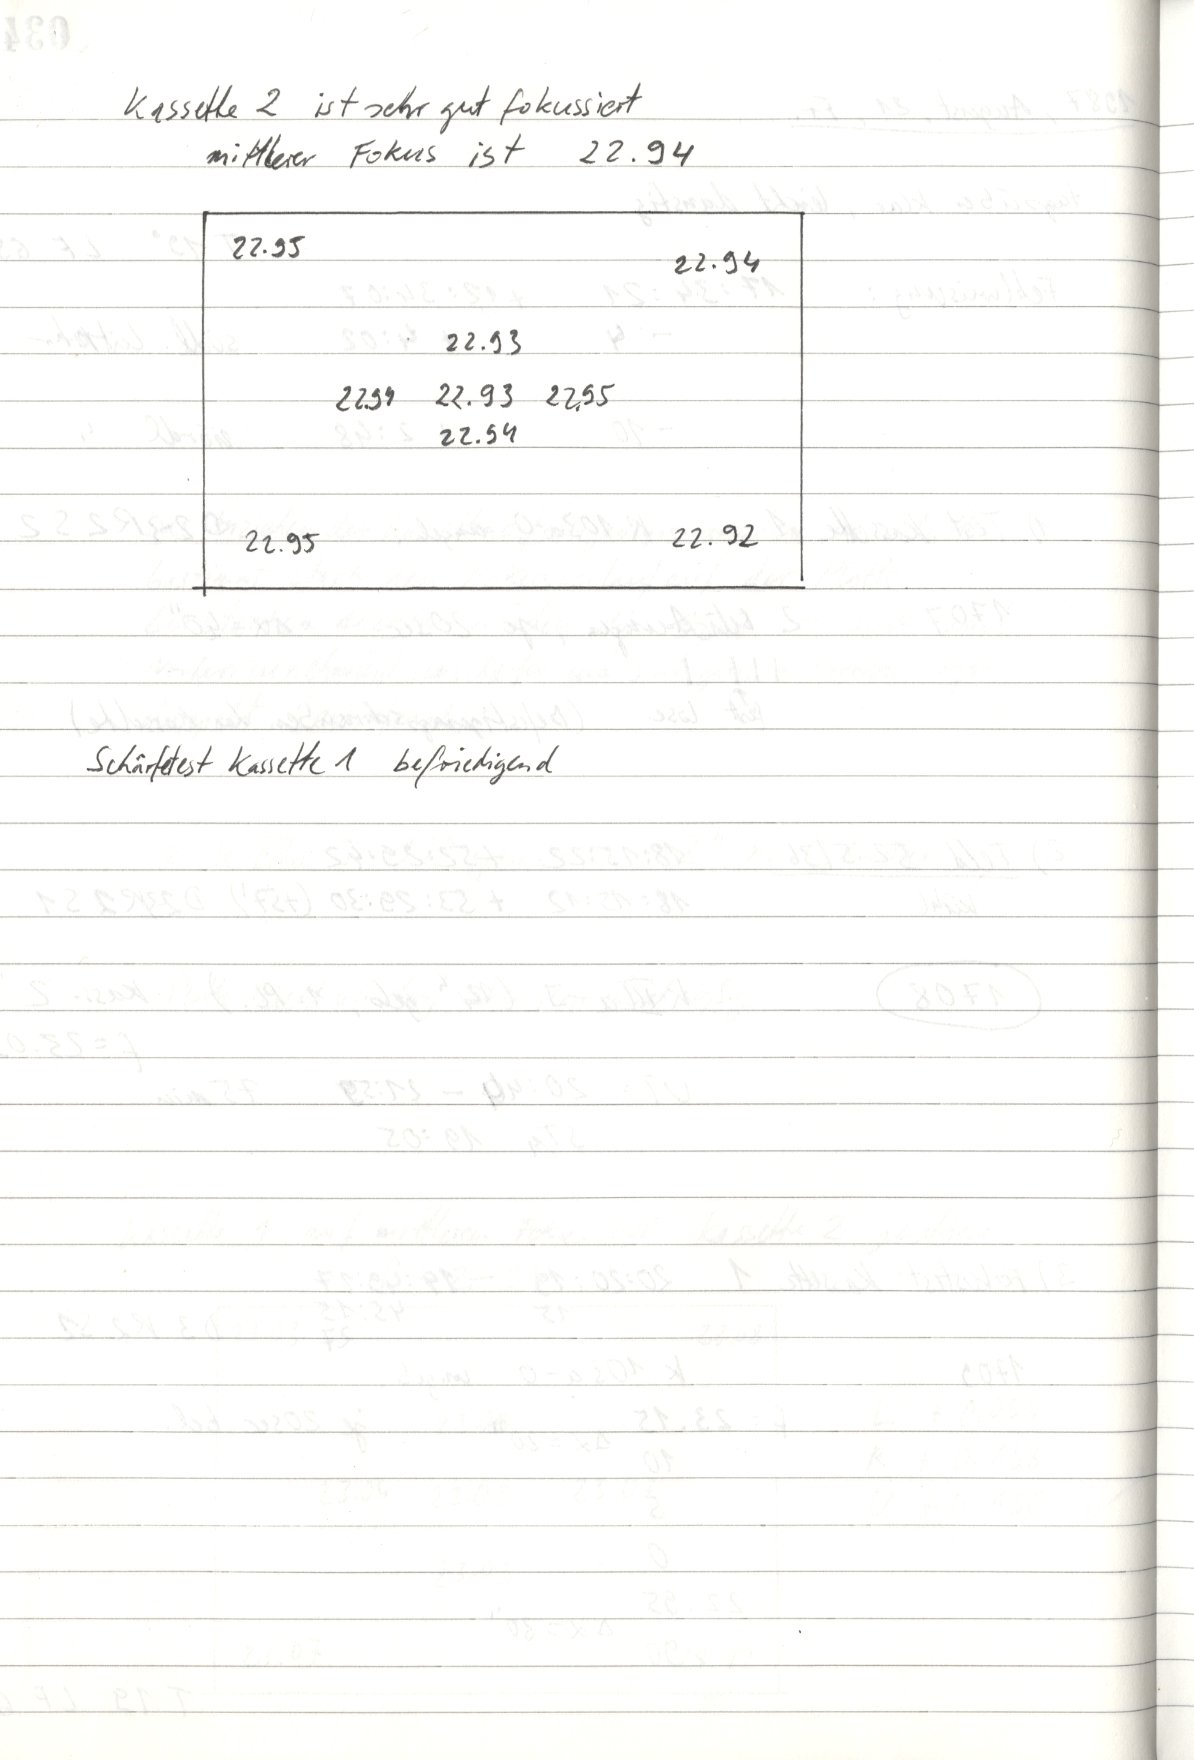 Kassette 2 ist sehr gut fokussiert
mittlerer Fokus ist 22.94
22.95 22.94
22.93
22.94 22.93 22.95
22.94
22.95 22.92
Schärfetest Kassette 1 befriedigend